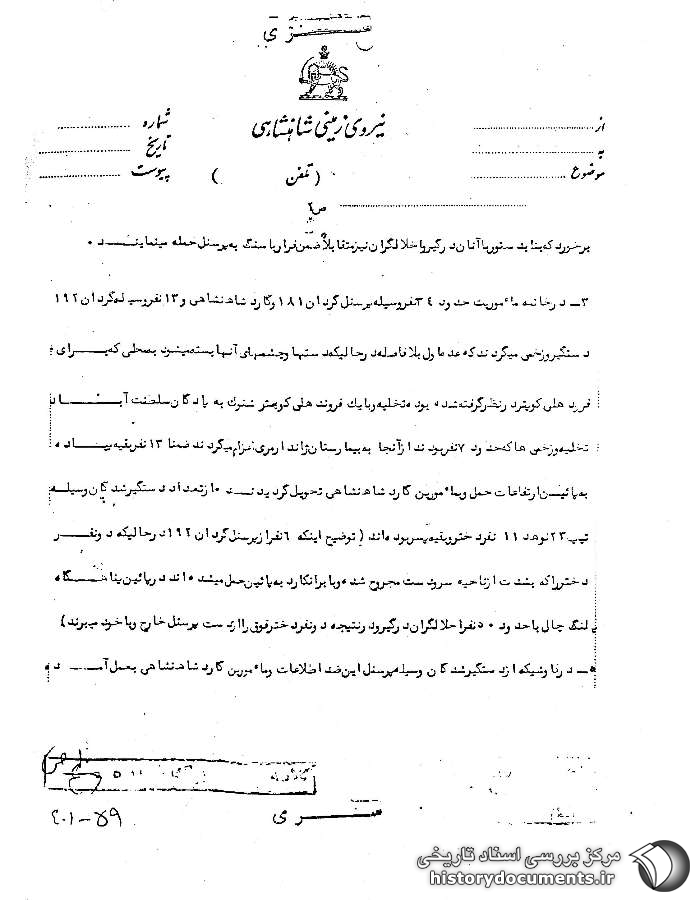 سری
نیروی زمینی شاهنشاهی
از
به
موضوع
شماره
تاریخ
پیوست
(تلفن )
برخورد که بنا بد ستور با آنان درگیر و اخلالگران نیز متقابلاً ضمن فرار با سنگ به پرسنل حمله مینمایند .
۳ـ در خاتمه مأموریت حدود ۳٤ نفر وسیله پرسنل گردان ۱۸۱ و گارد شاهنشاهی و ۱۳ نفر وسیله گردان ۱۹۲
دستگیر و زخمی میگردند که عده اول بلافاصله در حالیکه دستها و چشمهای آنها بسته میشود بمحلی که برای
فرود هلی کوپتر در نظر گرفته شده بود تخلیه و با یک فروند هلی کوپتر شنوک به پادگان سلطنت آباد
تخلیه و زخمی ها که حدود ۷ نفر بودند از آنجا به بیمارستان ژاندارمری اعزام میگردند ضمنا ۱۳ نفر بقیه پیاده
به پائین ارتفاعات حمل و به مأمورین گارد شاهنشاهی تحویل گردیدند ۰ از تعداد دستگیر شدگان وسیله
تیپ ۲۳ نوهد ۱۱ نفر دختر و بقیه پسر بوده اند ( توضیح اینکه ٦ نفر از پرسنل گردان ۱۹۲ در حالیکه دو نفر
دختر را که بشدت از ناحیه سر و دست مجروح شده و با برانکارد به پائین حمل میشده اند در پائین پناهگاه
پلنگ چال با حدود ۵۰ نفر اخلالگران درگیر و در نتیجه دو نفر دختر فوق را از دست پرسنل خارج و با خود میبرند )
ـ در کاوشیکه از دستگیر شدگان وسیله پرسنل این ضد اطلاعات و مأمورین گارد شاهنشاهی بعمل آمد
سری
٤۰۱-۵۹
مرکز بررسی اسناد تاریخی
historydocuments.ir